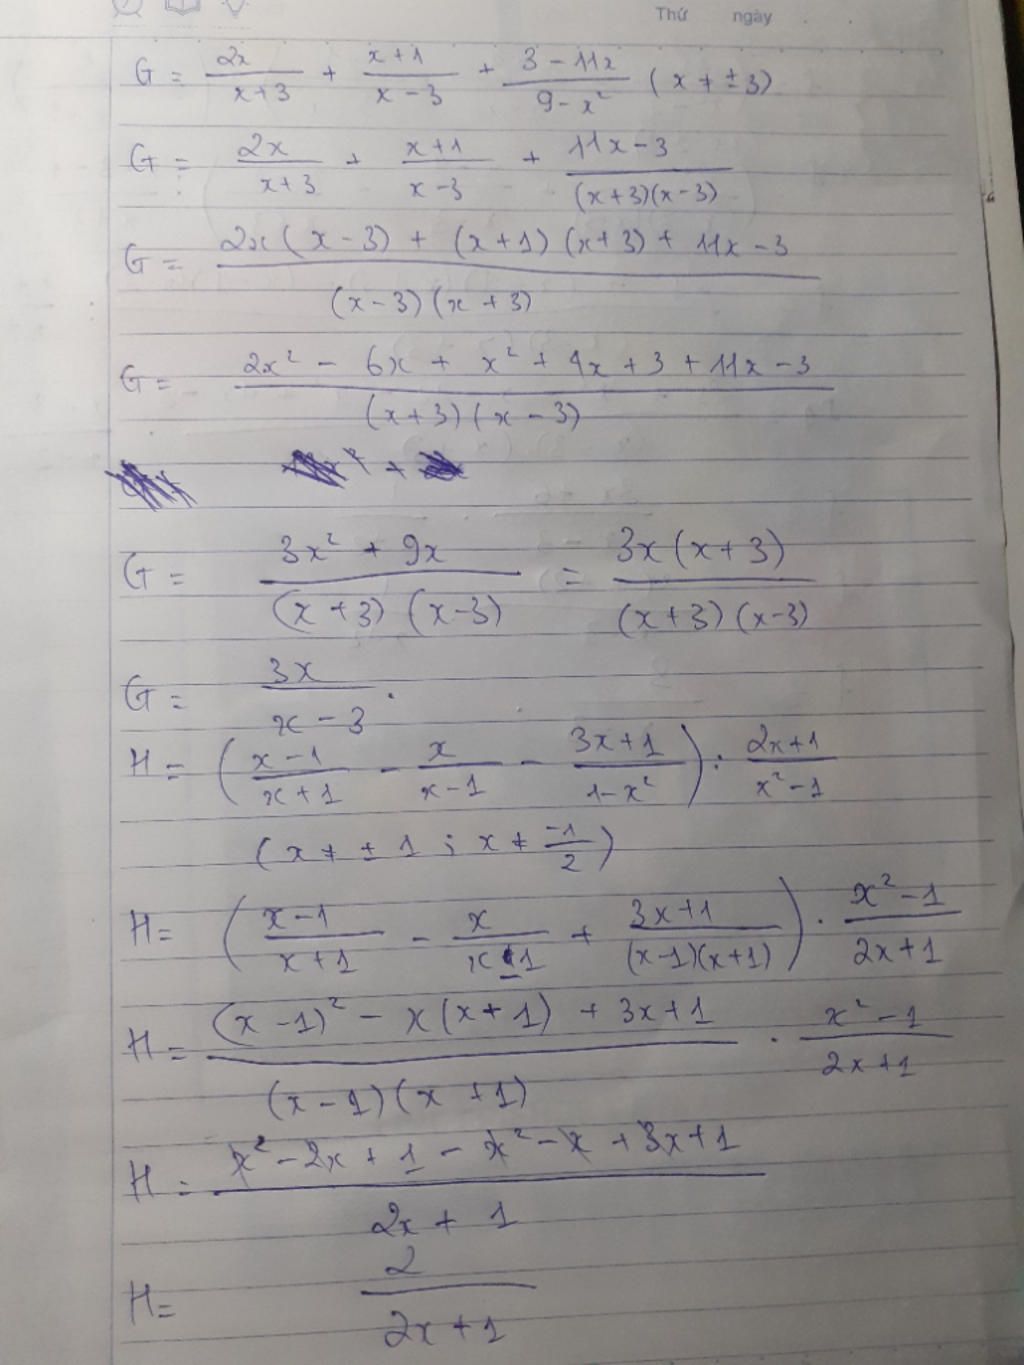 Thứ ngày
G = \frac{2x}{x+3} + \frac{x+1}{x-3} + \frac{3-11x}{9-x^2} (x ≠ ±3)
G = \frac{2x}{x+3} + \frac{x+1}{x-3} + \frac{11x-3}{(x+3)(x-3)}
G = \frac{2x(x-3) + (x+1)(x+3) + 11x-3}{(x-3)(x+3)}
G = \frac{2x^2 - 6x + x^2 + 4x + 3 + 11x - 3}{(x+3)(x-3)}
G = \frac{3x^2 + 9x}{(x+3)(x-3)} = \frac{3x(x+3)}{(x+3)(x-3)}
G = \frac{3x}{x-3}.
H = (\frac{x-1}{x+1} - \frac{x}{x-1} - \frac{3x+1}{1-x^2}) : \frac{2x+1}{x^2-1}
(x ≠ ±1; x ≠ \frac{-1}{2})
H = (\frac{x-1}{x+1} - \frac{x}{x-1} + \frac{3x+1}{(x-1)(x+1)}) . \frac{x^2-1}{2x+1}
H = \frac{(x-1)^2 - x(x+1) + 3x+1}{(x-1)(x+1)} . \frac{x^2-1}{2x+1}
H = \frac{x^2 - 2x + 1 - x^2 - x + 3x + 1}{2x+1}
H = \frac{2}{2x+1}